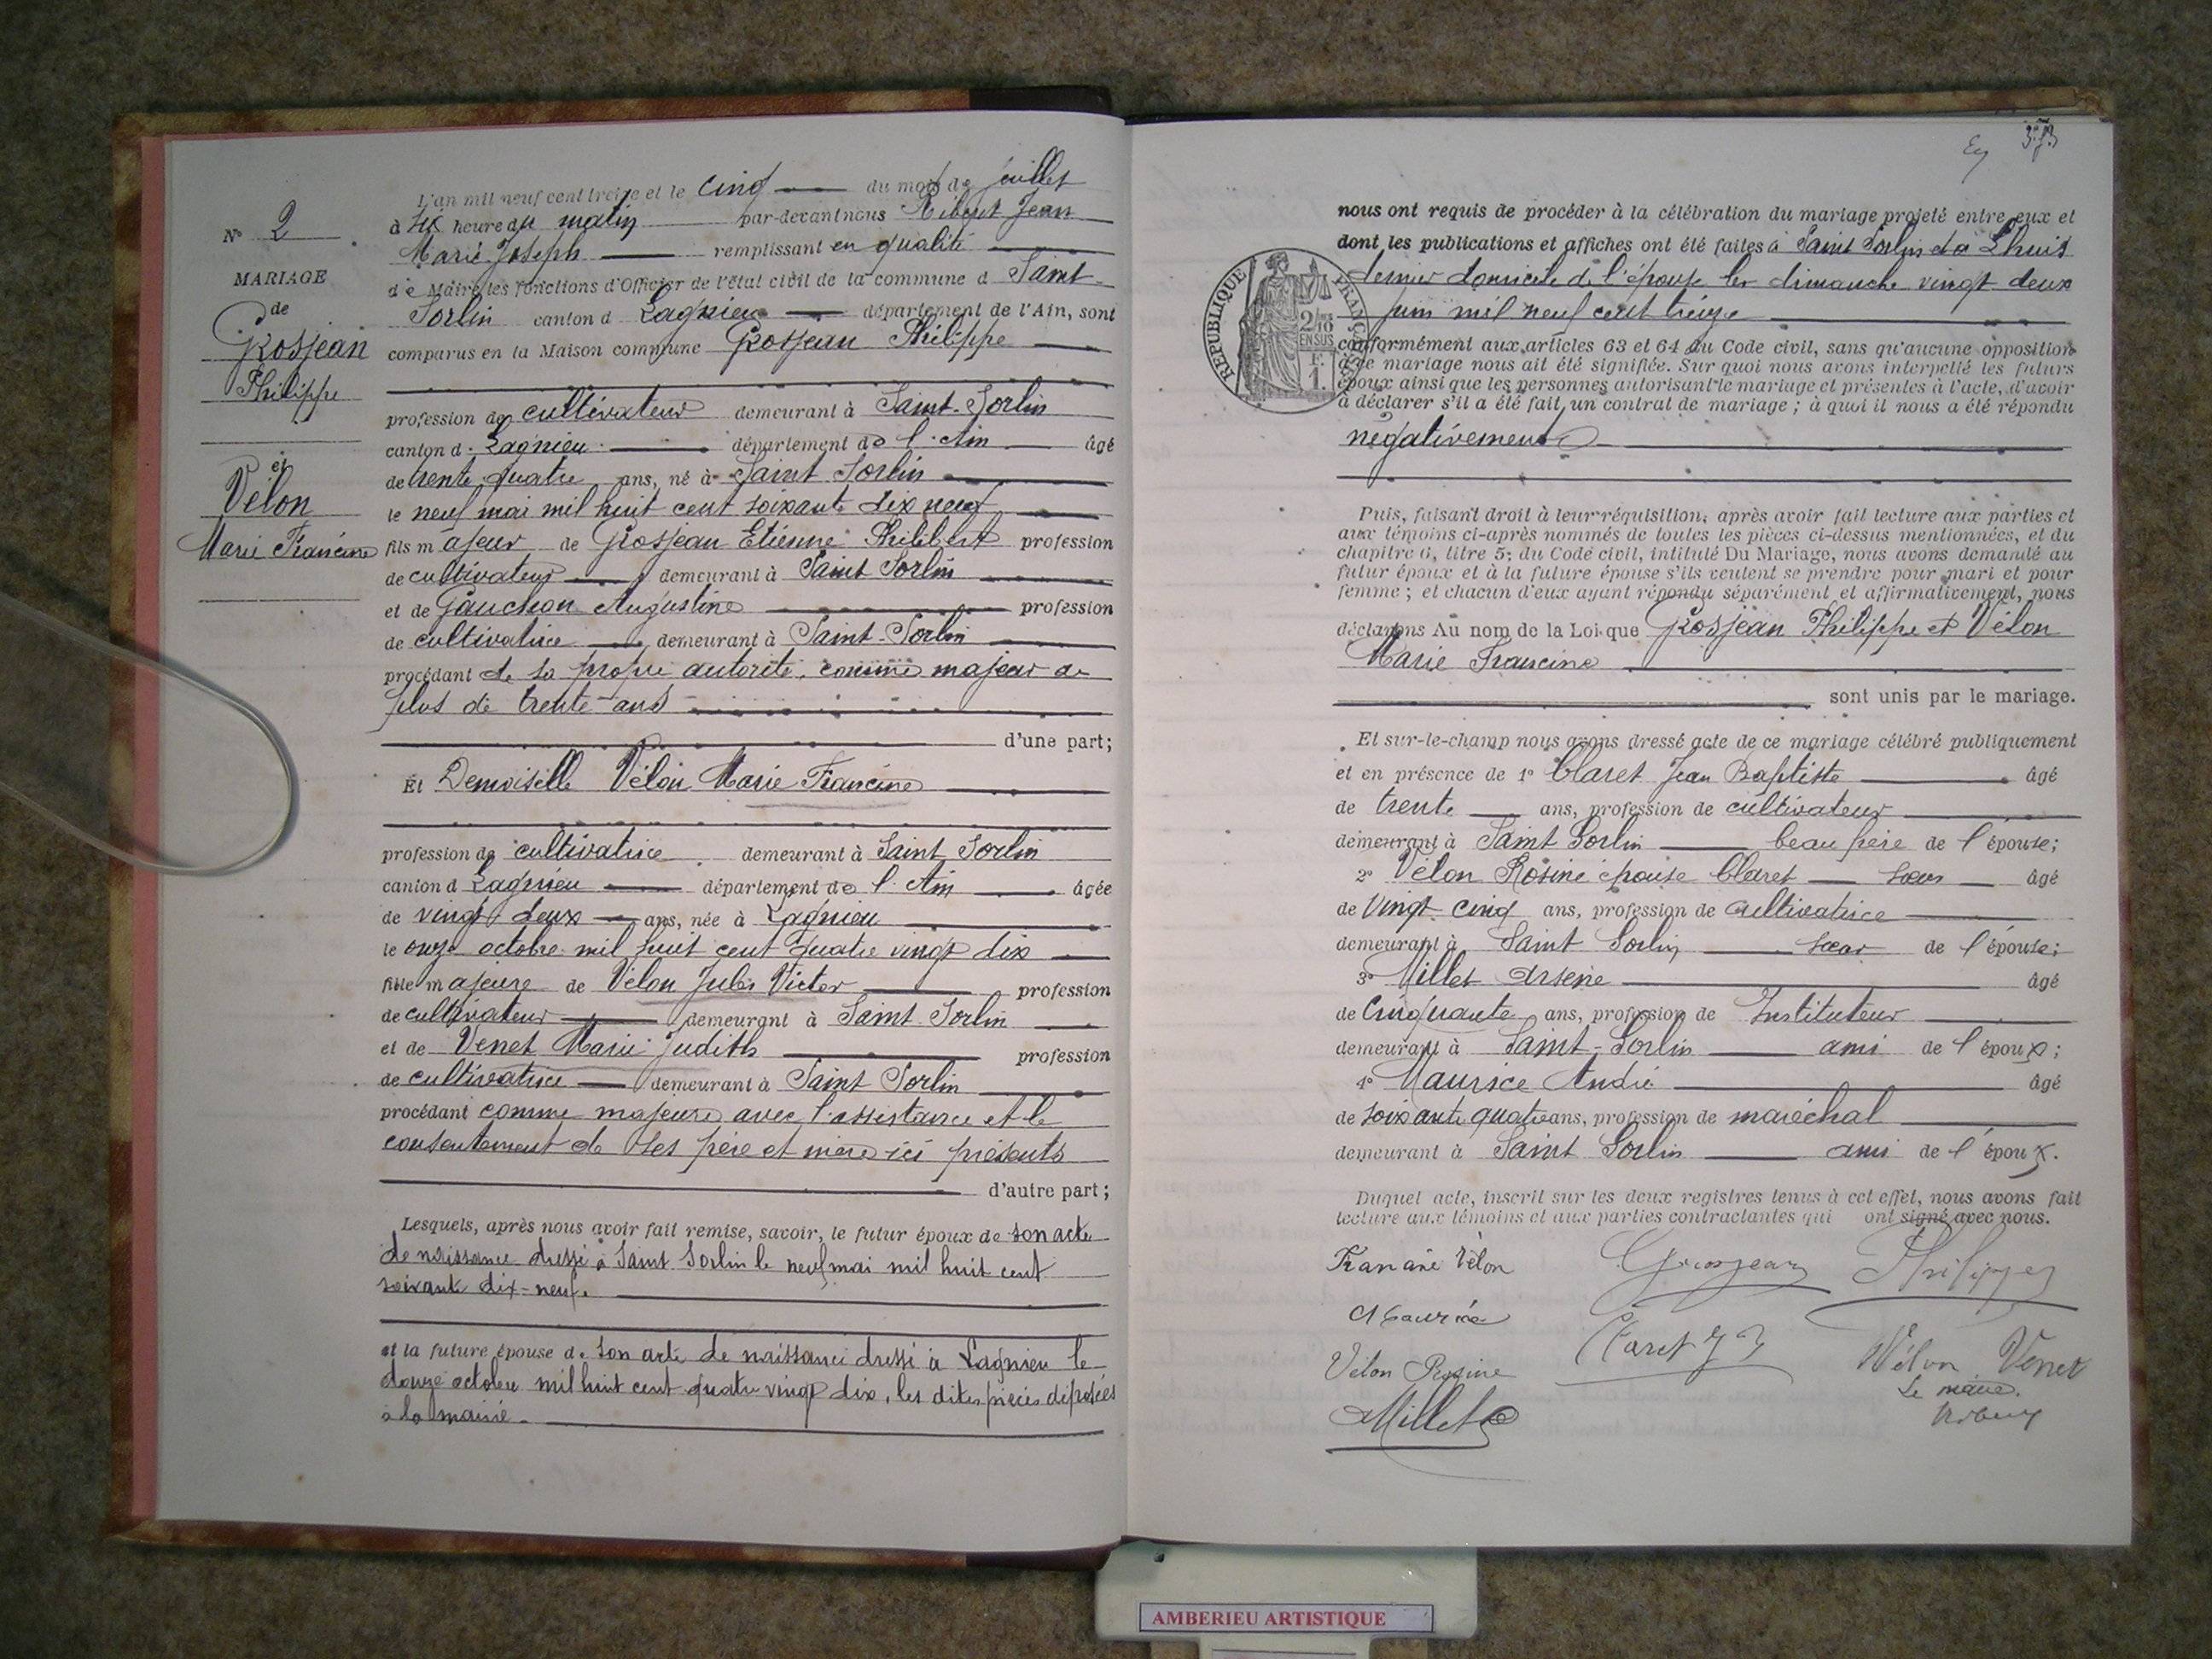 N° 2
MARIAGE
de
Grosjean
Philippe
et
Vélon
Marie Francine
L'an mil neuf cent treize et le cinq du mois de juillet
à six heure du matin par-devant nous Ribout Jean
Marie Joseph remplissant en qualité
de Maire les fonctions d'Officier de l'état civil de la commune d Saint-
Sorlin canton d Lagnieu département de l'Ain, sont
comparus en la Maison commune Grosjean Philippe
profession de cultivateur demeurant à Saint-Sorlin
canton d Lagnieu département de l'Ain âgé
de trente quatre ans, né à Saint Sorlin
le neuf mai mil huit cent soixante dix neuf
fils majeur de Grosjean Etienne Philibert profession
de cultivateur demeurant à Saint Sorlin
et de Gauchon Augustine profession
de cultivatrice demeurant à Saint-Sorlin
procédant de sa propre autorité, comme majeur de
plus de trente ans
d'une part;
Et Demoiselle Vélon Marie Francine
profession de cultivatrice demeurant à Saint Sorlin
canton d Lagnieu département de l'Ain âgée
de vingt deux ans, née à Lagnieu
le onze octobre mil huit cent quatre vingt dix
fille majeure de Vélon Jules Victor profession
de cultivateur demeurant à Saint Sorlin
et de Venet Marie Judith profession
de cultivatrice demeurant à Saint Sorlin
procédant comme majeure avec l'assistance et le
consentement de ses père et mère ici présents
d'autre part;
Lesquels, après nous avoir fait remise, savoir, le futur époux de son acte
de naissance dressé à Saint Sorlin le neuf mai mil huit cent
soixante dix-neuf.
et la future épouse de son acte de naissance dressé à Lagnieu le
douze octobre mil huit cent quatre vingt dix, les dites pièces déposées
à la mairie.
nous ont requis de procéder à la célébration du mariage projeté entre eux et
dont les publications et affiches ont été faites à Saint Sorlin et à Lhuis
dernier domicile de l'épouse les dimanche vingt deux
juin mil neuf cent treize
conformément aux articles 63 et 64 du Code civil, sans qu'aucune opposition
à ce mariage nous ait été signifiée. Sur quoi nous avons interpellé les futurs
époux ainsi que les personnes autorisant le mariage et présentes à l'acte, d'avoir
à déclarer s'il a été fait un contrat de mariage; à quoi il nous a été répondu
négativement
REPUBLIQUE FRANÇAISE
2/10
EN SUS
1 F.
Puis, faisant droit à leur réquisition, après avoir fait lecture aux parties et
aux témoins ci-après nommés de toutes les pièces ci-dessus mentionnées, et du
chapitre 6, titre 5; du Code civil, intitulé Du Mariage, nous avons demandé au
futur époux et à la future épouse s'ils veulent se prendre pour mari et pour
femme; et chacun d'eux ayant répondu séparément et affirmativement, nous
déclarons Au nom de la Loi que Grosjean Philippe et Vélon
Marie Francine
sont unis par le mariage.
Et sur-le-champ nous avons dressé acte de ce mariage célébré publiquement
et en présence de 1° Claret Jean Baptiste âgé
de trente ans, profession de cultivateur
demeurant à Saint Sorlin beau frère de l'épouse;
2° Vélon Rosine épouse Claret soeur âgé
de vingt cinq ans, profession de cultivatrice
demeurant à Saint Sorlin soeur de l'épouse;
3° Millet Arsène âgé
de Cinquante ans, profession de Instituteur
demeurant à Saint-Sorlin ami de l'époux;
4° Maurice André âgé
de soixante quatre ans, profession de maréchal
demeurant à Saint Sorlin ami de l'époux.
Duquel acte, inscrit sur les deux registres tenus à cet effet, nous avons fait
lecture aux témoins et aux parties contractantes qui ont signé avec nous.
Francine Vélon Grosjean Philippe
A Maurice
Claret J B
Vélon Rosine Vélon Venet
Le maire.
Millet
AMBERIEU ARTISTIQUE